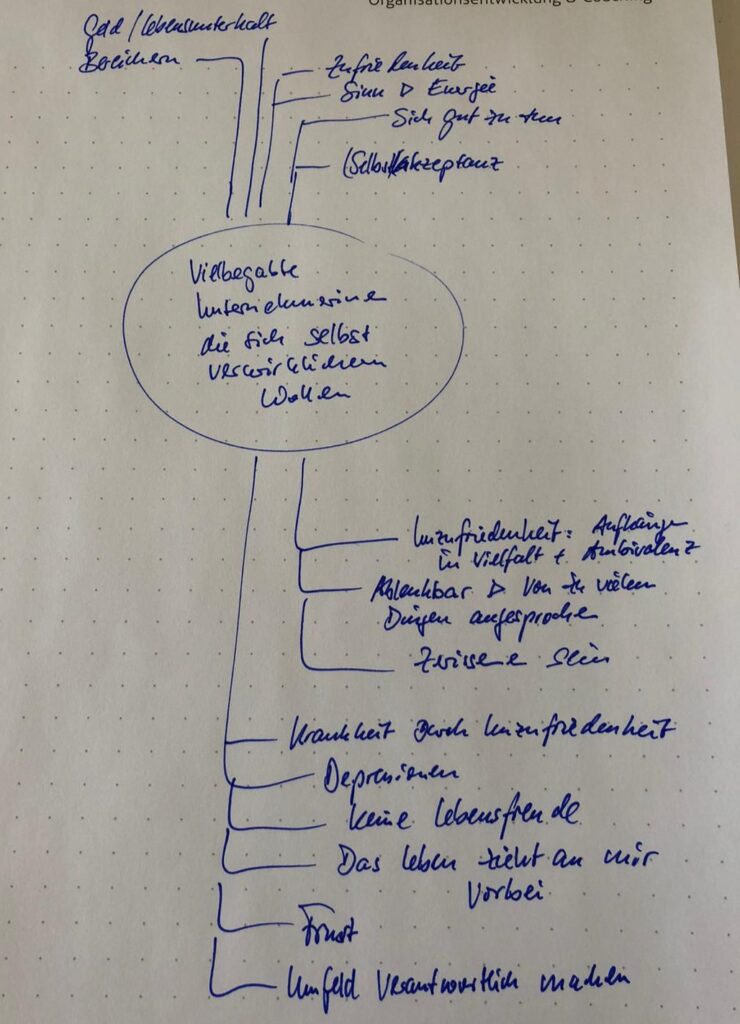 Organisationsentwicklung & Coaching
Geld / Lebensunterhalt
Bereichern
Zufriedenheit
Sinn ▷ Energie
Sich gut zu tun
(Selbst)akzeptanz
Vielbegabte
Unternehmerinne
die sich selbst
verwirklichen
wollen
Unzufriedenheit: Aufhänge
in Vielfalt + Ambivalenz
Ablenkbar ▷ Von zu vielen
Dingen angesproche
Zerissene sein
Krankheit durch Unzufriedenheit
Depressionen
keine Lebensfreude
Das Leben zieht an mir
vorbei
Frust
Umfeld verantwortlich machen